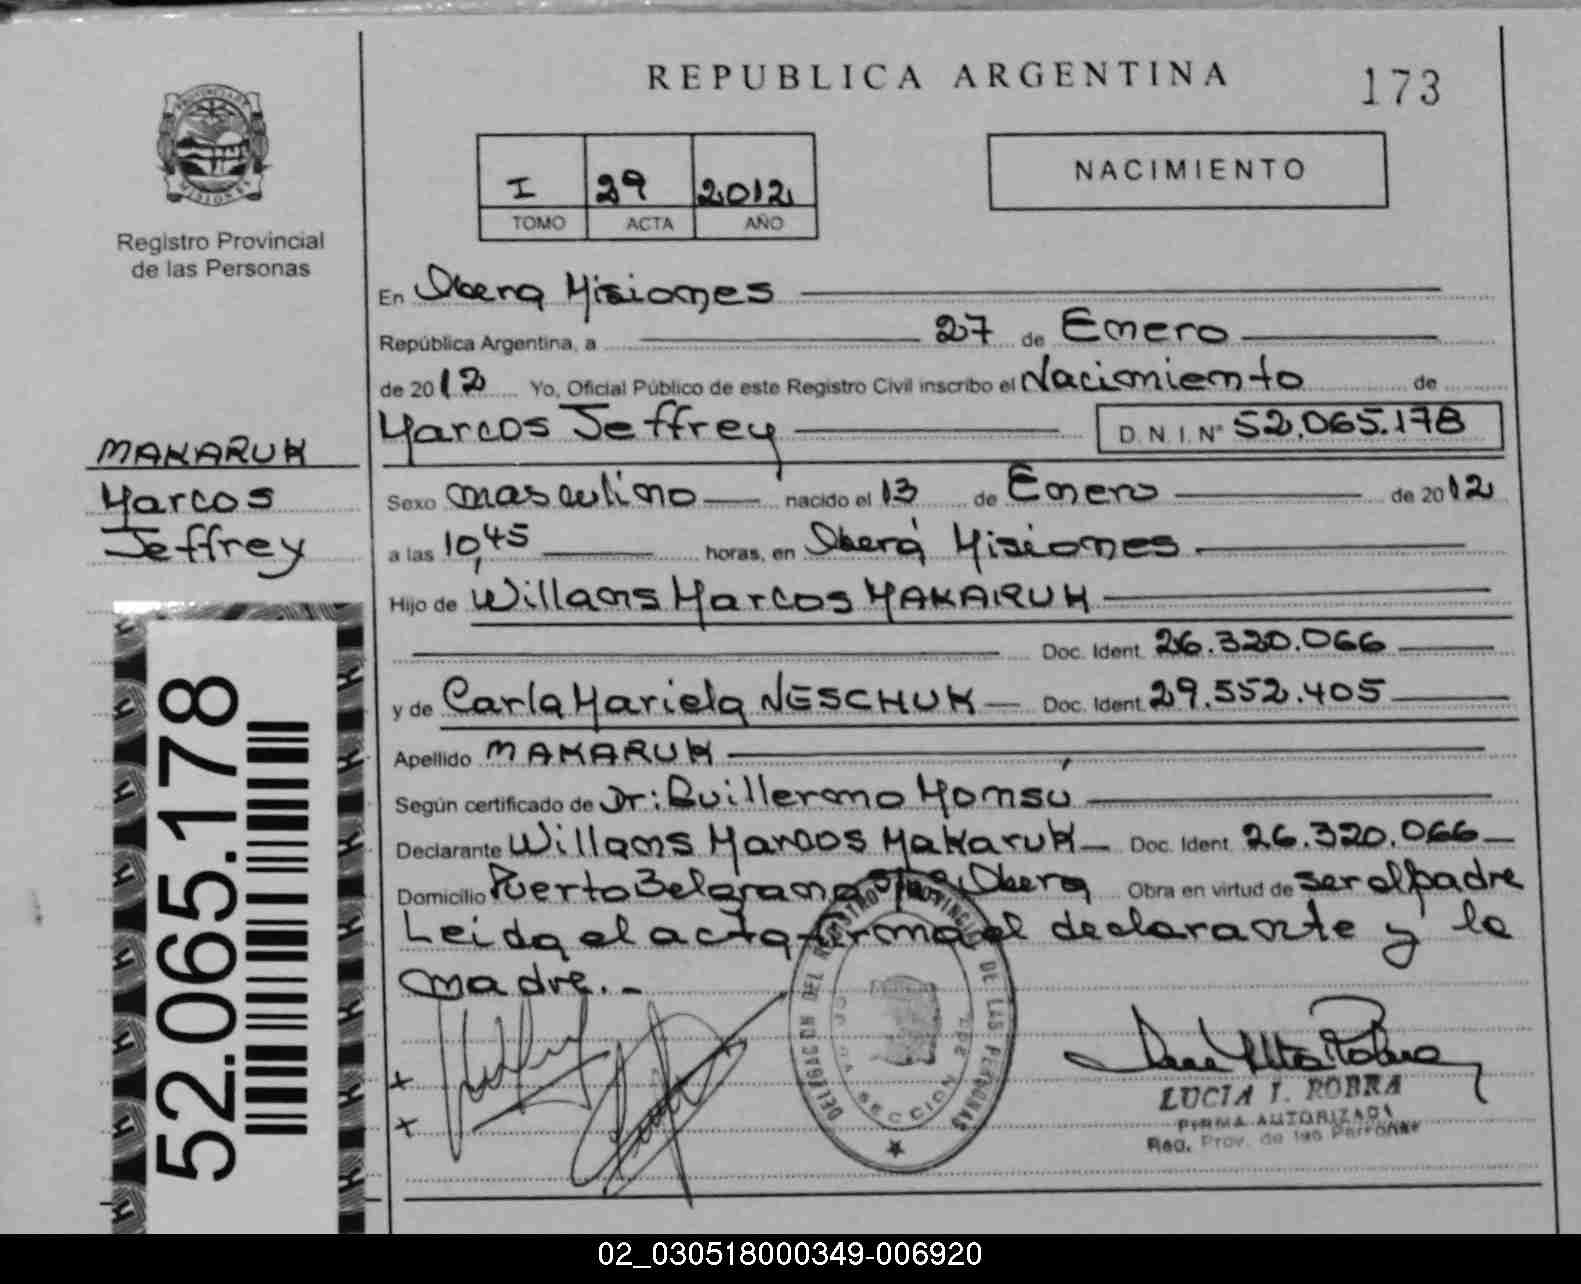 REPUBLICA ARGENTINA
173
PROVINCIA DE
MISIONES
Registro Provincial
de las Personas
I 29 2012
TOMO ACTA AÑO
NACIMIENTO
En Oberá Misiones
República Argentina, a 27 de Enero
de 2012 Yo, Oficial Público de este Registro Civil inscribo el Nacimiento de
Marcos Jeffrey D.N.I.N° 52.065.178
MAKARUK
Marcos
Jeffrey
Sexo masculino nacido el 13 de Enero de 2012
a las 10,45 horas, en Oberá Misiones
Hijo de Willams Marcos MAKARUK
Doc. Ident. 26.320.066
y de Carla Mariela NESCHUK Doc. Ident. 29.552.405
Apellido MAKARUK
Según certificado de Dr: Guillermo Monsú
Declarante Willams Marcos Makaruk Doc. Ident. 26.320.066
Domicilio Puerto Belgrano Oberá Obra en virtud de ser el padre
Leida el acta firma el declarante y la
madre.-
52.065.178
DELEGACION DEL REGISTRO PROVINCIAL DE LAS PERSONAS
SECCION
LUCIA I. ROBRA
FIRMA AUTORIZADA
Reg. Prov. de las Personas
02_030518000349-006920